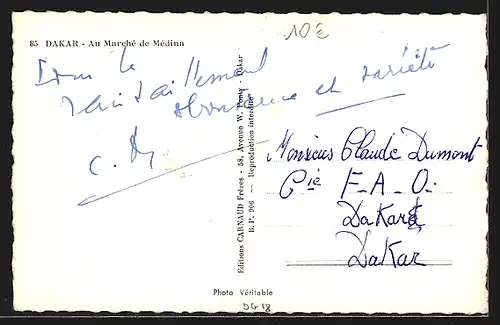 10 €
85 DAKAR - Au Marché de Médina
Pour le
ravitaillement
abondance et variété
C. D
Editions CARNAUD Frères - 58, Avenue W. Ponty - Dakar
B. P. 906 — Reproduction interdite
Monsieur Claude Dumont
Cie F_A_O_
Dakar
Dakar
Photo Véritable
DG 18